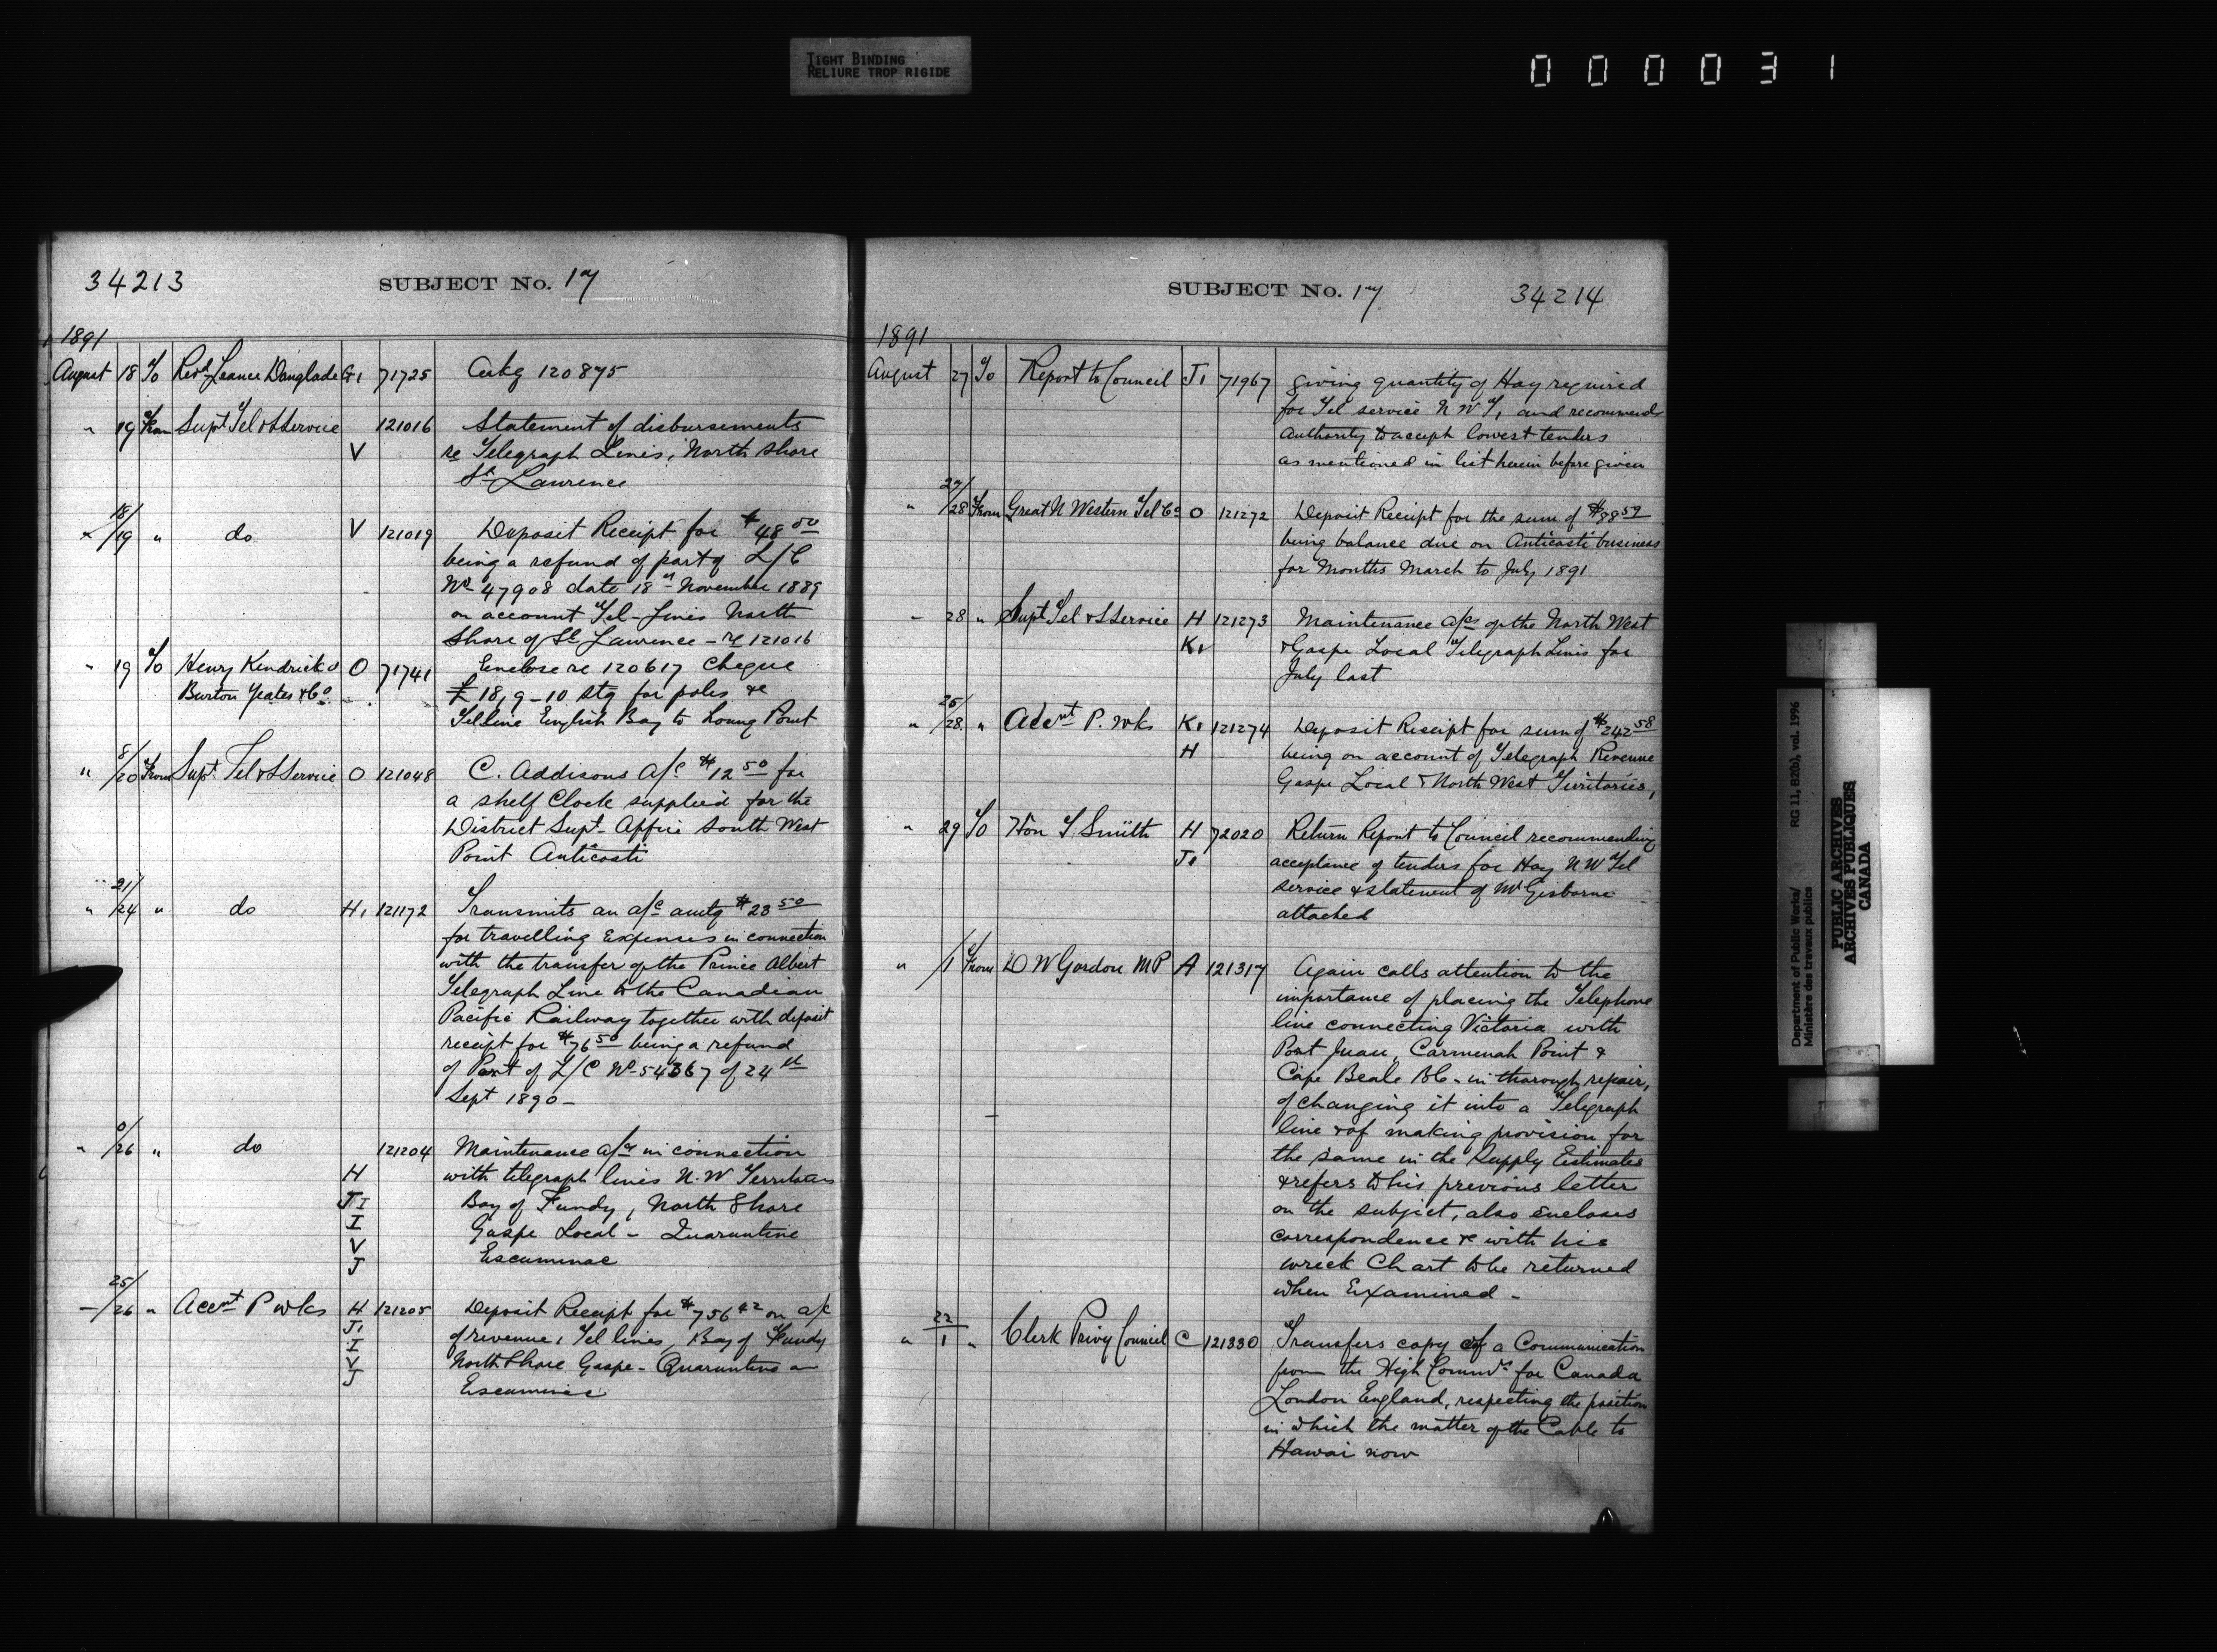 TIGHT BINDING
RELIURE TROP RIGIDE
000031
34213
SUBJECT No. 17
1891
August 18 To Revd Danglade G1 71725 Ackg 120875
" 19 From Supt Tel & S Service 121016 Statement of disbursements
V re Telegraph Lines, North Shore
St Lawrence
" 18/19 " do V 121019 Deposit Receipt for $48 50
being a refund of part of L/C
No 47908 date 18th November 1889
on account Tel-Lines North
Shore of St Lawrence - re 121016
" 19 To Henry Kendrick O 71741 Enclose re 120617 Cheque
Burton Yeates & Co. £18,9-10 stg for poles &c
Tel line English Bay to
Point
" 8/20 From Supt Tel & S Service O 121048 C. Addisons a/c $12 50 for
a shelf Clock supplied for the
District Supt Office South West
Point Anticosti
" 21/24 " do H1 121172 Transmits an a/c amtg $23 50
for travelling Expenses in connection
with the transfer of the Prince Albert
Telegraph Line to the Canadian
Pacific Railway together with deposit
receipt for $76 50 being a refund
of Part of L/C No 54367 of 24th
Sept 1890 -
" /26 " do 121204 Maintenance a/cs in connection
H with telegraph lines N.W Territories
JI Bay of Fundy, North Shore
I Gaspe Local - Quarantine
V Escuminac
J
" 25/26 " Accnt P wks H 121205 Deposit Receipt for $756 42 on a/c
J1 of revenue, Tel lines, Bay of Fundy
I North Shore Gaspe - Quarantine
V Escuminac
J
SUBJECT No. 17
34214
1891
August 27 To Report to Council J1 71967 giving quantity of Hay required
for Tel service N W T, and recommends
authority to accept lowest tenders
as mentioned in list herein before given
" 27/28 From Great N Western Tel Co O 121272 Deposit Receipt for the sum of $88 59
being balance due on Anticosti business
for Months March to July 1891
" 28 " Supt Tel & S Service H 121273 Maintenance a/cs of the North West
K1 & Gaspe Local Telegraph Lines for
July last
" 25/28 " Accnt P. wks K1 121274 Deposit Receipt for sum of $242 58
H being on account of Telegraph Revenue
Gaspe Local & North West Territories,
" 29 To Hon Smith H 72020 Return Report to Council recommending
J1 acceptance of tenders for Hay N W Tel
service & statement of Mr Gisborne
attached
" /1 From D W Gordon MP A 121317 Again calls attention to the
importance of placing the Telephone
line connecting Victoria with
Port Juan, Carmenah Point &
Cape Beale BC. in thorough repair,
of changing it into a Telegraph
line & of making provision for
the same in the Supply Estimates
& refers to his previous letter
on the subject, also encloses
correspondence &c with his
wreck Chart to be returned
when Examined -
" 22/1 " Clerk Privy Council C 121330 Transfers copy of a Communication
from the High Commr for Canada
London England, respecting the position
in which the matter of the Cable to
Hawai now
Department of Public Works/ RG 11, B2(b), vol. 1996
Ministère des travaux publics
PUBLIC ARCHIVES
ARCHIVES PUBLIQUES
CANADA